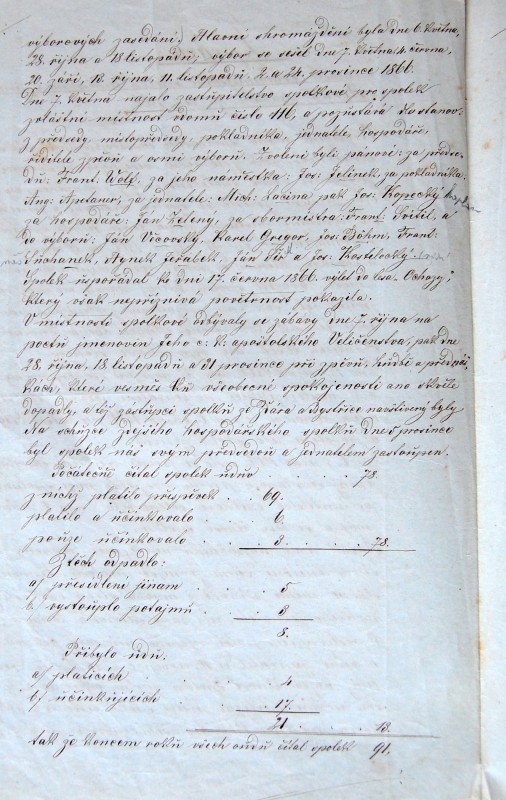 výborových zasedání. Hlavní shromáždění byla dne 6. května,
28. října a 18 listopadu, výbor se sešel dne 7. května, 4. června,
20. září, 10. října, 11. listopadu, 2. a 24. prosince 1866.
Dne 7. května najalo zastupitelstvo spolkové pro spolek
zvláštní místnost v domě číslo a pozůstává
z předsedy, místopředsedy, pokladníka, jednatele, hospodáře,
ředitele zpěvu a osmi výborů. Zvoleni byli pánové: za předse-
du: Frant. Wolf, za jeho náměstka: Jos: Jelinek, za pokladníka:
Ang: za jednatele: Mich: Lacina pak Jos: Kopecký
za hospodáře: Ján Zelený, za sbormistra: Frant: a
do výboru: Ján Karel Gregor, Jos: Böhm, Frant:
Suchanek, Hynek Jeřábek, Ján a Jos: Kostelecký.
Spolek uspořádal ke dni 17. června 1866. výlet do lesa „Ochozy“,
který však nepříznivá povětrnost pokazila.
V místnosti spolkové odbývaly se zábavy dne října na
poctu jmenovin Jeho c: k: apoštolského Veličenstva, pak dne
28. října, 18. listopadu a 31 prosince při zpěvu, hudbě a předná-
škách, které vesměs ku všeobecné spokojenosti ano skvěle
dopadly, a též zástupci spolků ze Žďára a Bystřice navštíveny byly
Na schůzce zdejšího hospodářského spolku dne 5 prosince
byl spolek náš svým předsedou a jednatelem zastoupen.
Počátečně čítal spolek údův . . . . 78.
z nichž platilo příspěvek . . 69.
platilo a účinkovalo . . . 6.
pouze účinkovalo . . . 3. . . . . 78.
Z těch odpadlo:
a) přesídlení jinam . . . 5
b) vystouplo potajmu . . . 3
8.
Přibylo údů:
a) platících . . . . 4
b) účinkujících . . . 17.
21 . . . . 13.
tak že koncem roku všech oudů čítal spolek 91.